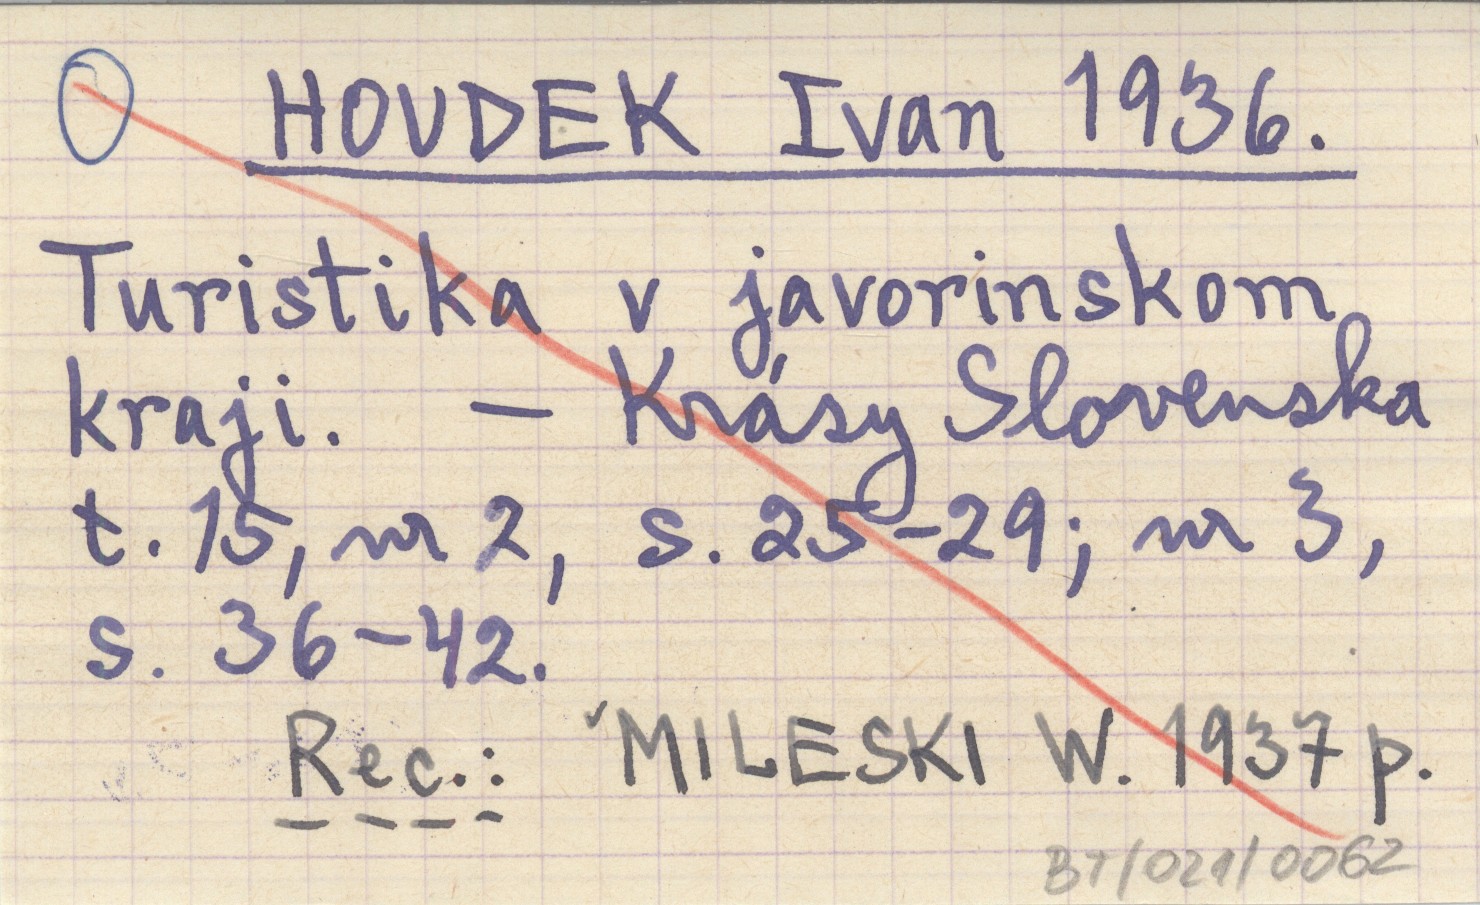 HOUDEK Ivan 1936.
Turistika v javorinskom
kraji. — Krásy Slovenska
t. 15, nr 2, s. 25-29; nr 3,
s. 36-42.
Rec.: MILESKI W. 1937 p.
BT/021/0062